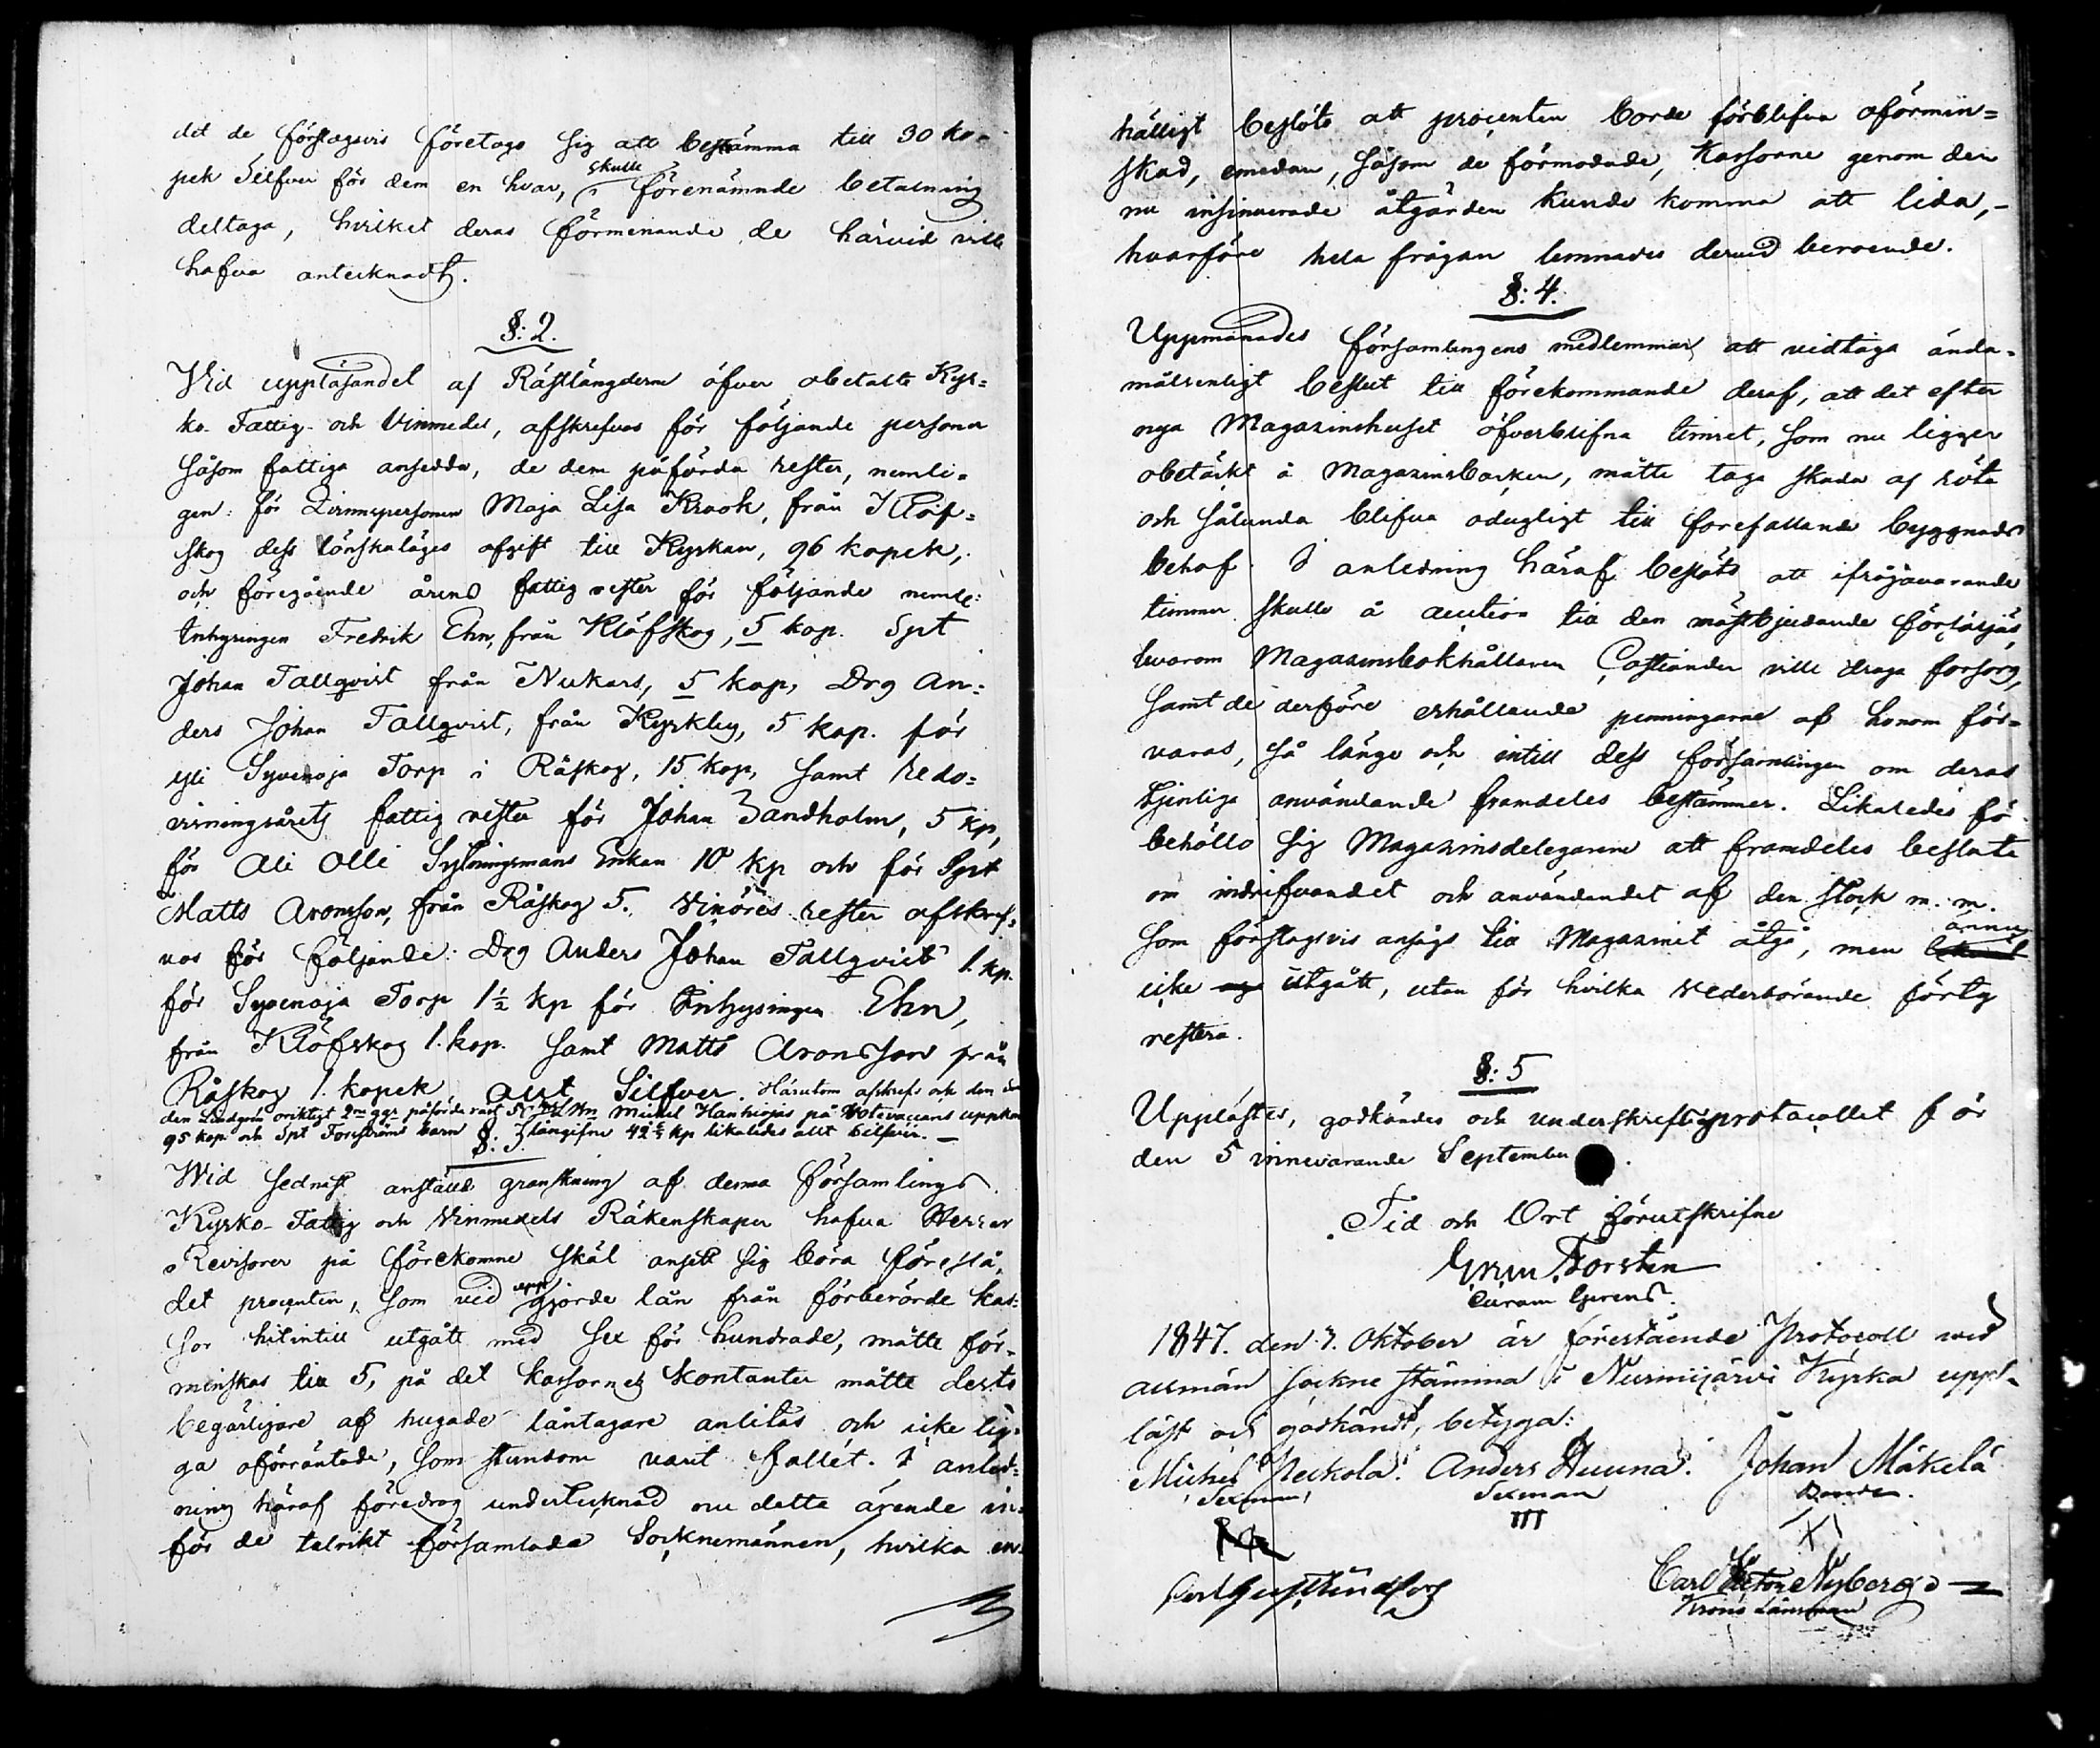 det de förslagsvis företogo sig att bestämma till 30 ko-
pek Silfver för dem en hvar, skulle i förenämnde betalning
deltaga, hvilket deras förmenande de härvid ville
hafva antecknadt.
§: 2.
Vid uppläsandet af Rästlängderne öfver obetalte Kyr=
ko- Fattig- och Vinmedel, afskrefvos för följande personer
såsom fattiga ansedda, de dem påförda rester, nemli=
gen: för Qvinnspersonen Maja Lisa Krook, från Klöf=
skog dess lönskaläges afgift till Kyrkan, 96 kopek,
och föregående årens fattig rester för följande neml:
Inhysingen Fredrik Ehn, från Klöfskog, 5 kop. Spt
Johan Tallqvist från Nukars, 5 kop, Drg An=
ders Johan Tallqvist, från Kyrkby, 5 kop. för
Syvenoja Torp i Råskog, 15 kop, samt redo=
visningsårets fattig rester för Johan Sandholm, 5 kp,
för Ali Olli Sytningsmans Enkan 10 kp och för Spt
Matts Aronsson, från Råskog 5. Vinöres rester afskref=
vos för följande: Drg Anders Johan Tallqvist 1 kp.
för Syvenoja Torp 1½ kp för Inhysingen Ehn,
från Klöfskog 1. kop. samt Matts Aronsson från
Råskog 1. kopek allt Silfver. Härutom afskrefs och den
den Lindgrén oriktigt 2ne ggr påförde rast Michel Hanhiojas på
95 kop och Spt Forsströms barn 42 kp likaledes allt Silfver. —
§. 3.
Wid sednast anstäld granskning af denna församlings
Kyrko- Fattig och Vinmedels Räkenskaper hafva Herrar
Revisorer på förekomne skäl ansett sig böra föreslå,
det procenten, som vid uppgjorde lån från förberörde kas=
sor hitintill utgått med sex för hundrade, måtte för=
minskas till 5, på det kassornes kontanter måtte desto
begärligare af hugade låntagare anlitas och icke lig=
ga oförräntade, som stundom varit fallet. I anled=
ning häraf föredrog undertecknad nu detta ärende in=
för de talrikt församlade Socknemännen, hvilka en=
hälligt beslöts att procenten borde förblifva oförmin=
skad, emedan, såsom de förmodade, Kassorne genom den
nu insinuerade åtgärden kunde komma att lida, -
hvarföre hela frågan lemnades dervid beroende.
§: 4.
Uppmanades församlingens medlemmar att vidtaga ända=
målsenligt beslut till förekommande deraf, att det efter
nya Magazinshuset öfverblifna timret, som nu ligger
obetäckt å Magazinsbacken, måtte taga skada af röta
och sålunda blifva odugligt till förefallande byggnads
behof. I anledning häraf beslöts att ifrågavarande
timmer skulle å auction till den mästbjudande försäljas,
hvarom Magazinsbokhållaren Castiander ville draga försorg,
samt de derföre erhållande penningarne af honom för=
varas, så länge och intill dess församlingen om deras
tjenliga användande framdeles bestämmer. Likaledes för
behöllo sig Magazinsdelegarne att framdeles besluta
om indrifvandet och användandet af den stock m. m.
som förslagsvis ansågs till Magazinet åtgå, men ännu
icke utgått, utan för hvilka vederbörande förty
restera.
§: 5
Upplästes, godkändes och underskrefs protocollet för
den 5 innevarande September.
Tid och Ort förutskrifne
Forsten
Curam Gerens.
1847. den 3. Oktober är förestående Protocoll wid
allmän sockne stämma i Nurmijärvi Kyrka upp=
läst och godkändt, betyga:
Michel Heikola. Anders Huuna. Johan Mäkelä
Sexman, Sexman Bonde.
Carl Gust Lindfors Carl Anton Nyberg
Krono Länsman